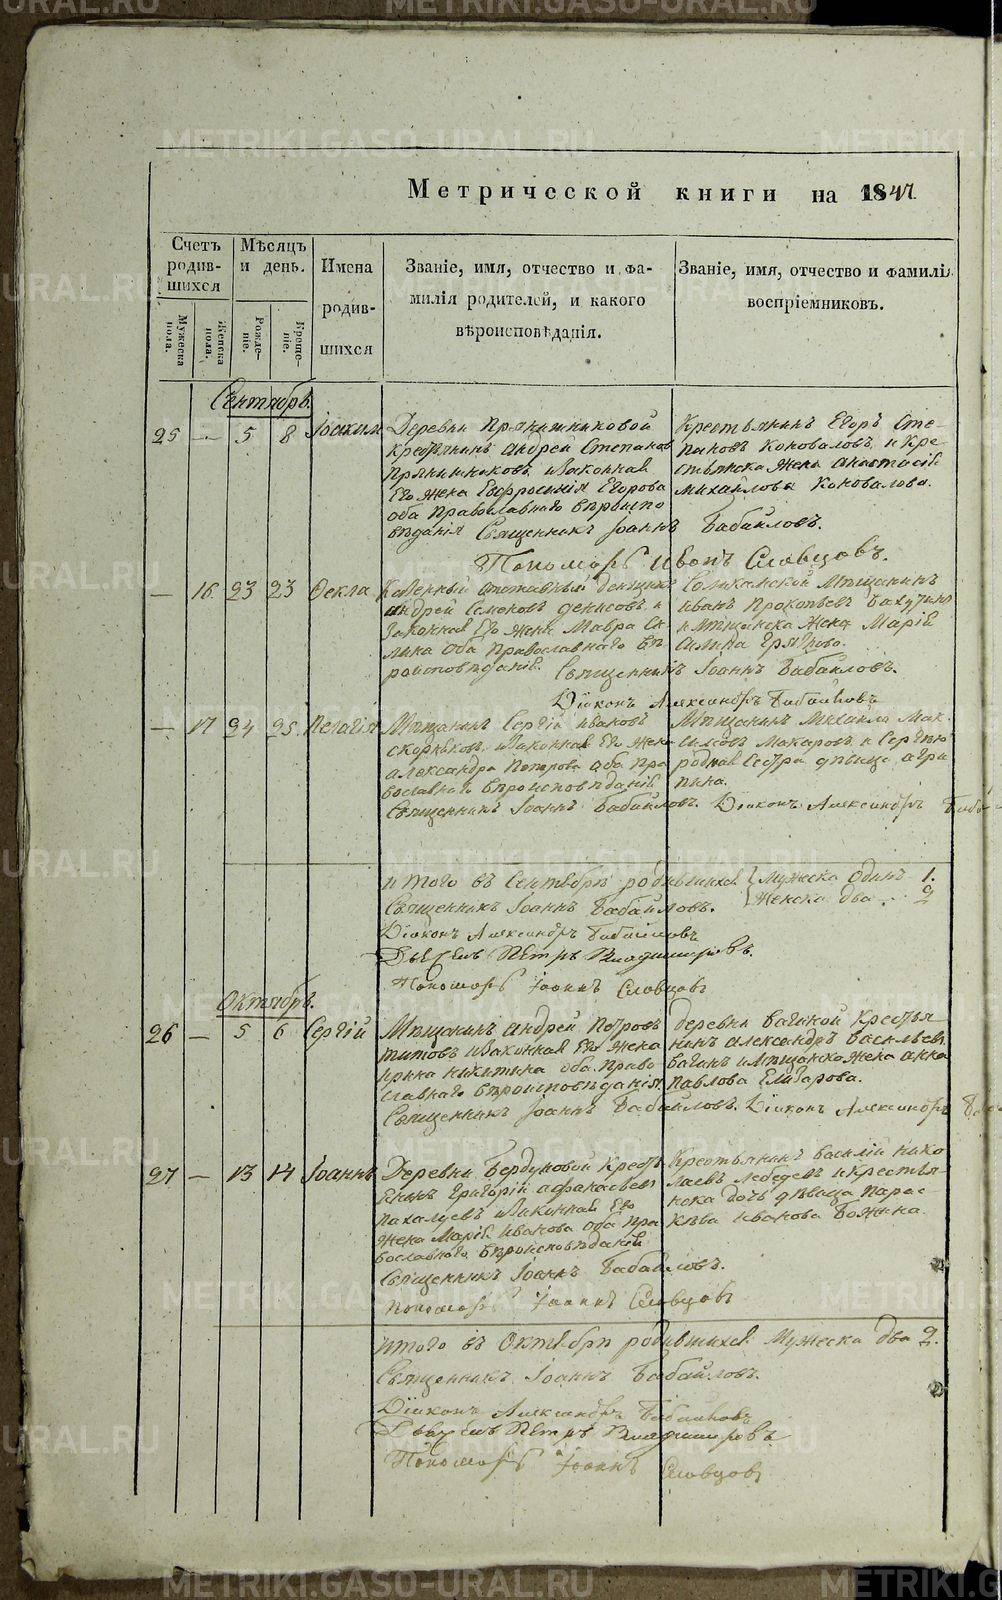 METRIKI.GASO-URAL.RU
Метрической книги на 1847.
Счетъ родившихся
Мѣсяцъ и день.
Имена родившихся
Званіе, имя, отчество и фамилія родителей, и какого вѣроисповѣданія.
Званіе, имя, отчество и фамилія воспріемниковъ.
Мужеска пола.
Женска пола.
Рожденіе.
Крещеніе.
Сентябрь.
25 — 5 8 Іоакимъ
Деревни Прянишниковой
крестьянинъ Андрей Степановъ
Прянишниковъ и законная
его жена Евфросинія Егорова
оба православнаго вѣроиспо
вѣданія Священникъ Іоаннъ Бабайловъ.
Крестьянинъ Егоръ Сте-
пановъ Коноваловъ, и кре-
стьянска жена Анастасія
Михайлова Коновалова.
Пономарь Иванъ Словцовъ.
— 16 23 23 Фекла
Казенный отставный денщикъ
Андрей Семеновъ Денисовъ и
законная его жена Мавра
оба православнаго вѣ-
роисповѣданія. Священникъ Іоаннъ Бабайловъ.
Соликамской мѣщанинъ
Иванъ Прокопьевъ
и мѣщанска жена Марія
Діаконъ Александръ Бабайловъ
— 17 24 25 Пелагія
Мѣщанинъ Сергій Ивановъ
Скорняковъ и законная его жена
Александра Петрова оба пра
вославнаго вѣроисповѣданія
Священникъ Іоаннъ Бабайловъ. Діаконъ Александръ
Мѣщанинъ Михаилъ Мак-
симовъ Макаровъ и Сергѣю
родная сестра дѣвица Агри
пина.
итого въ Сентябрѣ родившихся Мужеска одинъ 1.
Женска два. 2
Священникъ Іоаннъ Бабайловъ.
Діаконъ Александръ Бабайловъ
Дьячекъ Петръ Владимировъ.
Пономарь Іоаннъ Словцовъ
Октябрь.
26 — 5 6 Сергій
Мѣщанинъ Андрей Петровъ
Титовъ и законная его жена
Ирина Никитина оба право
славнаго вѣроисповѣданія
Священникъ Іоаннъ Бабайловъ. Діаконъ Александръ
деревни Вагиной крестья-
нинъ Александръ Васильевъ
Вагинъ и мѣщанска жена Анна
Павлова Елизарова.
27 — 13 14 Іоаннъ
Деревни Бердюковой крестья
янинъ Григорій Афанасьевъ
Пахалуевъ и законная его
жена Марія Иванова оба пра
вославнаго вѣроисповѣданія
Священникъ Іоаннъ Бабайловъ.
Пономарь Іоаннъ Словцовъ
Крестьянинъ Василій Нико
лаевъ Лебедевъ и крестья-
нска дочь дѣвица Парас-
кева Иванова Божина.
итого въ Октябрѣ родившихся Мужеска два 2.
Священникъ Іоаннъ Бабайловъ.
Діаконъ Александръ Бабайловъ
Дьячекъ Петръ Владимировъ
Пономарь Іоаннъ Словцовъ